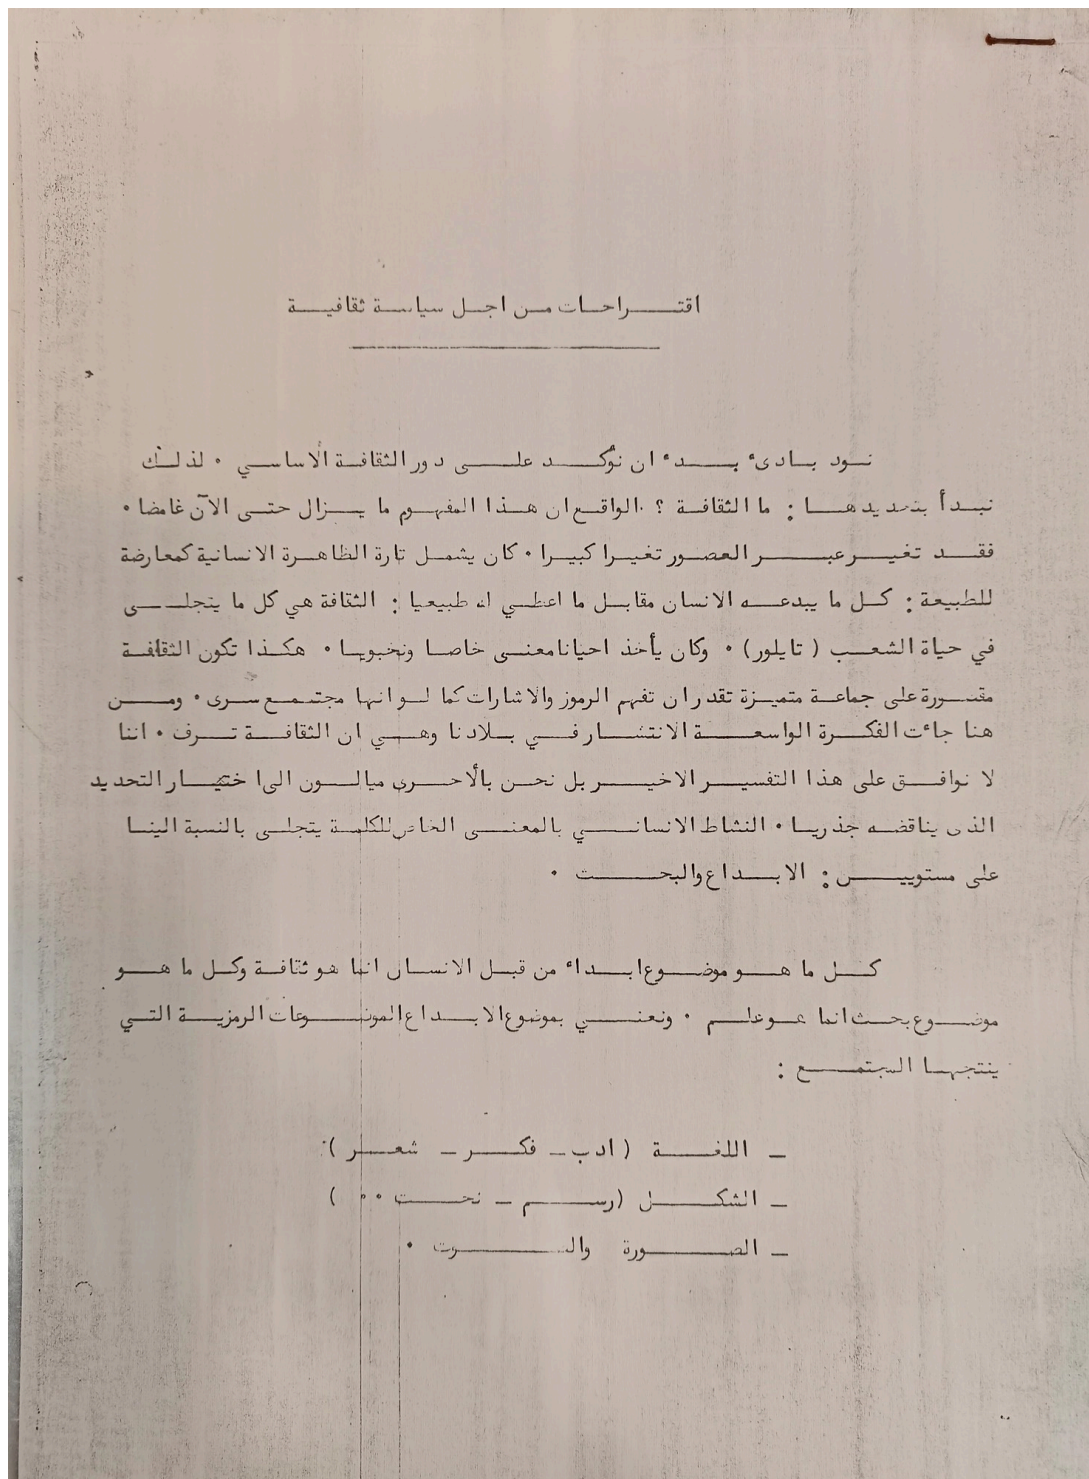 اقتراحات من اجل سياسة ثقافية
نود بادىء بدء ان نؤكد على دور الثقافة الاساسي . لذلك
نبدأ بتحديدها : ما الثقافة ؟ الواقع ان هذا المفهوم ما يزال حتى الآن غامضا .
فقد تغير عبر العصور تغيرا كبيرا . كان يشمل تارة الظاهرة الانسانية كمعارضة
للطبيعة : كل ما يبدعه الانسان مقابل ما اعطي له طبيعيا : الثقافة هي كل ما يتجلى
في حياة الشعب ( تايلور ) . وكان يأخذ احيانا معنى خاصا ونخبويا . هكذا تكون الثقافة
مقصورة على جماعة متميزة تقدر ان تفهم الرموز والاشارات كما لو انها مجتمع سرى . ومن
هنا جاءت الفكرة الواسعة الانتشار في بلادنا وهي ان الثقافة ترف . اننا
لا نوافق على هذا التفسير الاخير بل نحن بالأحرى ميالون الى اختيار التحديد
الذى يناقضه جذريا . النشاط الانساني بالمعنى الخاص للكلمة يتجلى بالنسبة الينا
على مستويين : الابداع والبحث .
كل ما هو موضوع ابداء من قبل الانسان انما هو ثقافة وكل ما هو
موضوع بحث انما هو علم . ونعني بموضوع الابداع الموضوعات الرمزية التي
ينتجها المجتمع :
ـ اللغة ( ادب ـ فكر ـ شعر )
ـ الشكل ( رسم ـ نحت .. )
ـ الصورة والصوت .